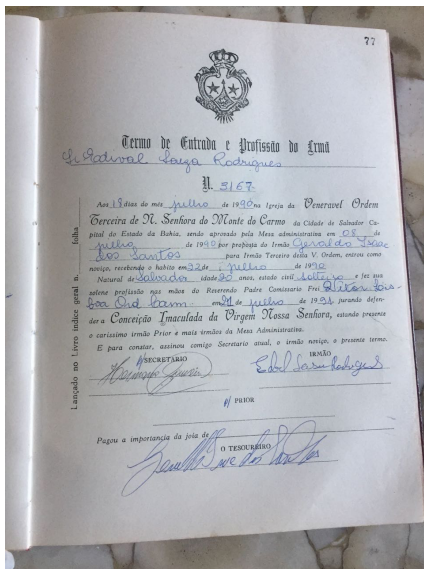 77
Termo de Entrada e Profissão do Irmã
Sr. Edival Souza Rodrigues
N. 3167
Aos 18 dias do mês julho de 1990 na Igreja da Veneravel Ordem
Terceira de N. Senhora do Monte do Carmo da Cidade de Salvador Ca-
pital do Estado da Bahia, sendo aprovado pela Mesa administrativa em 08 de
julho de 1990 por proposta do Irmão Geraldo Isaac
dos Santos para Irmão Terceiro desta V. Ordem, entrou como
noviço, recebendo o habito em 22 de julho de 1990
Natural de Salvador idade anos, estado civil solteiro e fez sua
solene profissão nas mãos do Reverendo Padre Comissario Frei
Ord Carm. em 21 de julho de 1991 jurando defen-
der a Conceição Imaculada da Virgem Nossa Senhora, estando presente
o carissimo irmão Prior e mais irmãos da Mesa Administrativa.
E para constar, assinou comigo Secretario atual, o irmão noviço, o presente termo.
SECRETÁRIO
IRMÃO
PRIOR
Pagou a importancia da joia de
O TESOUREIRO
Lançado no Livro indice geral n. folha